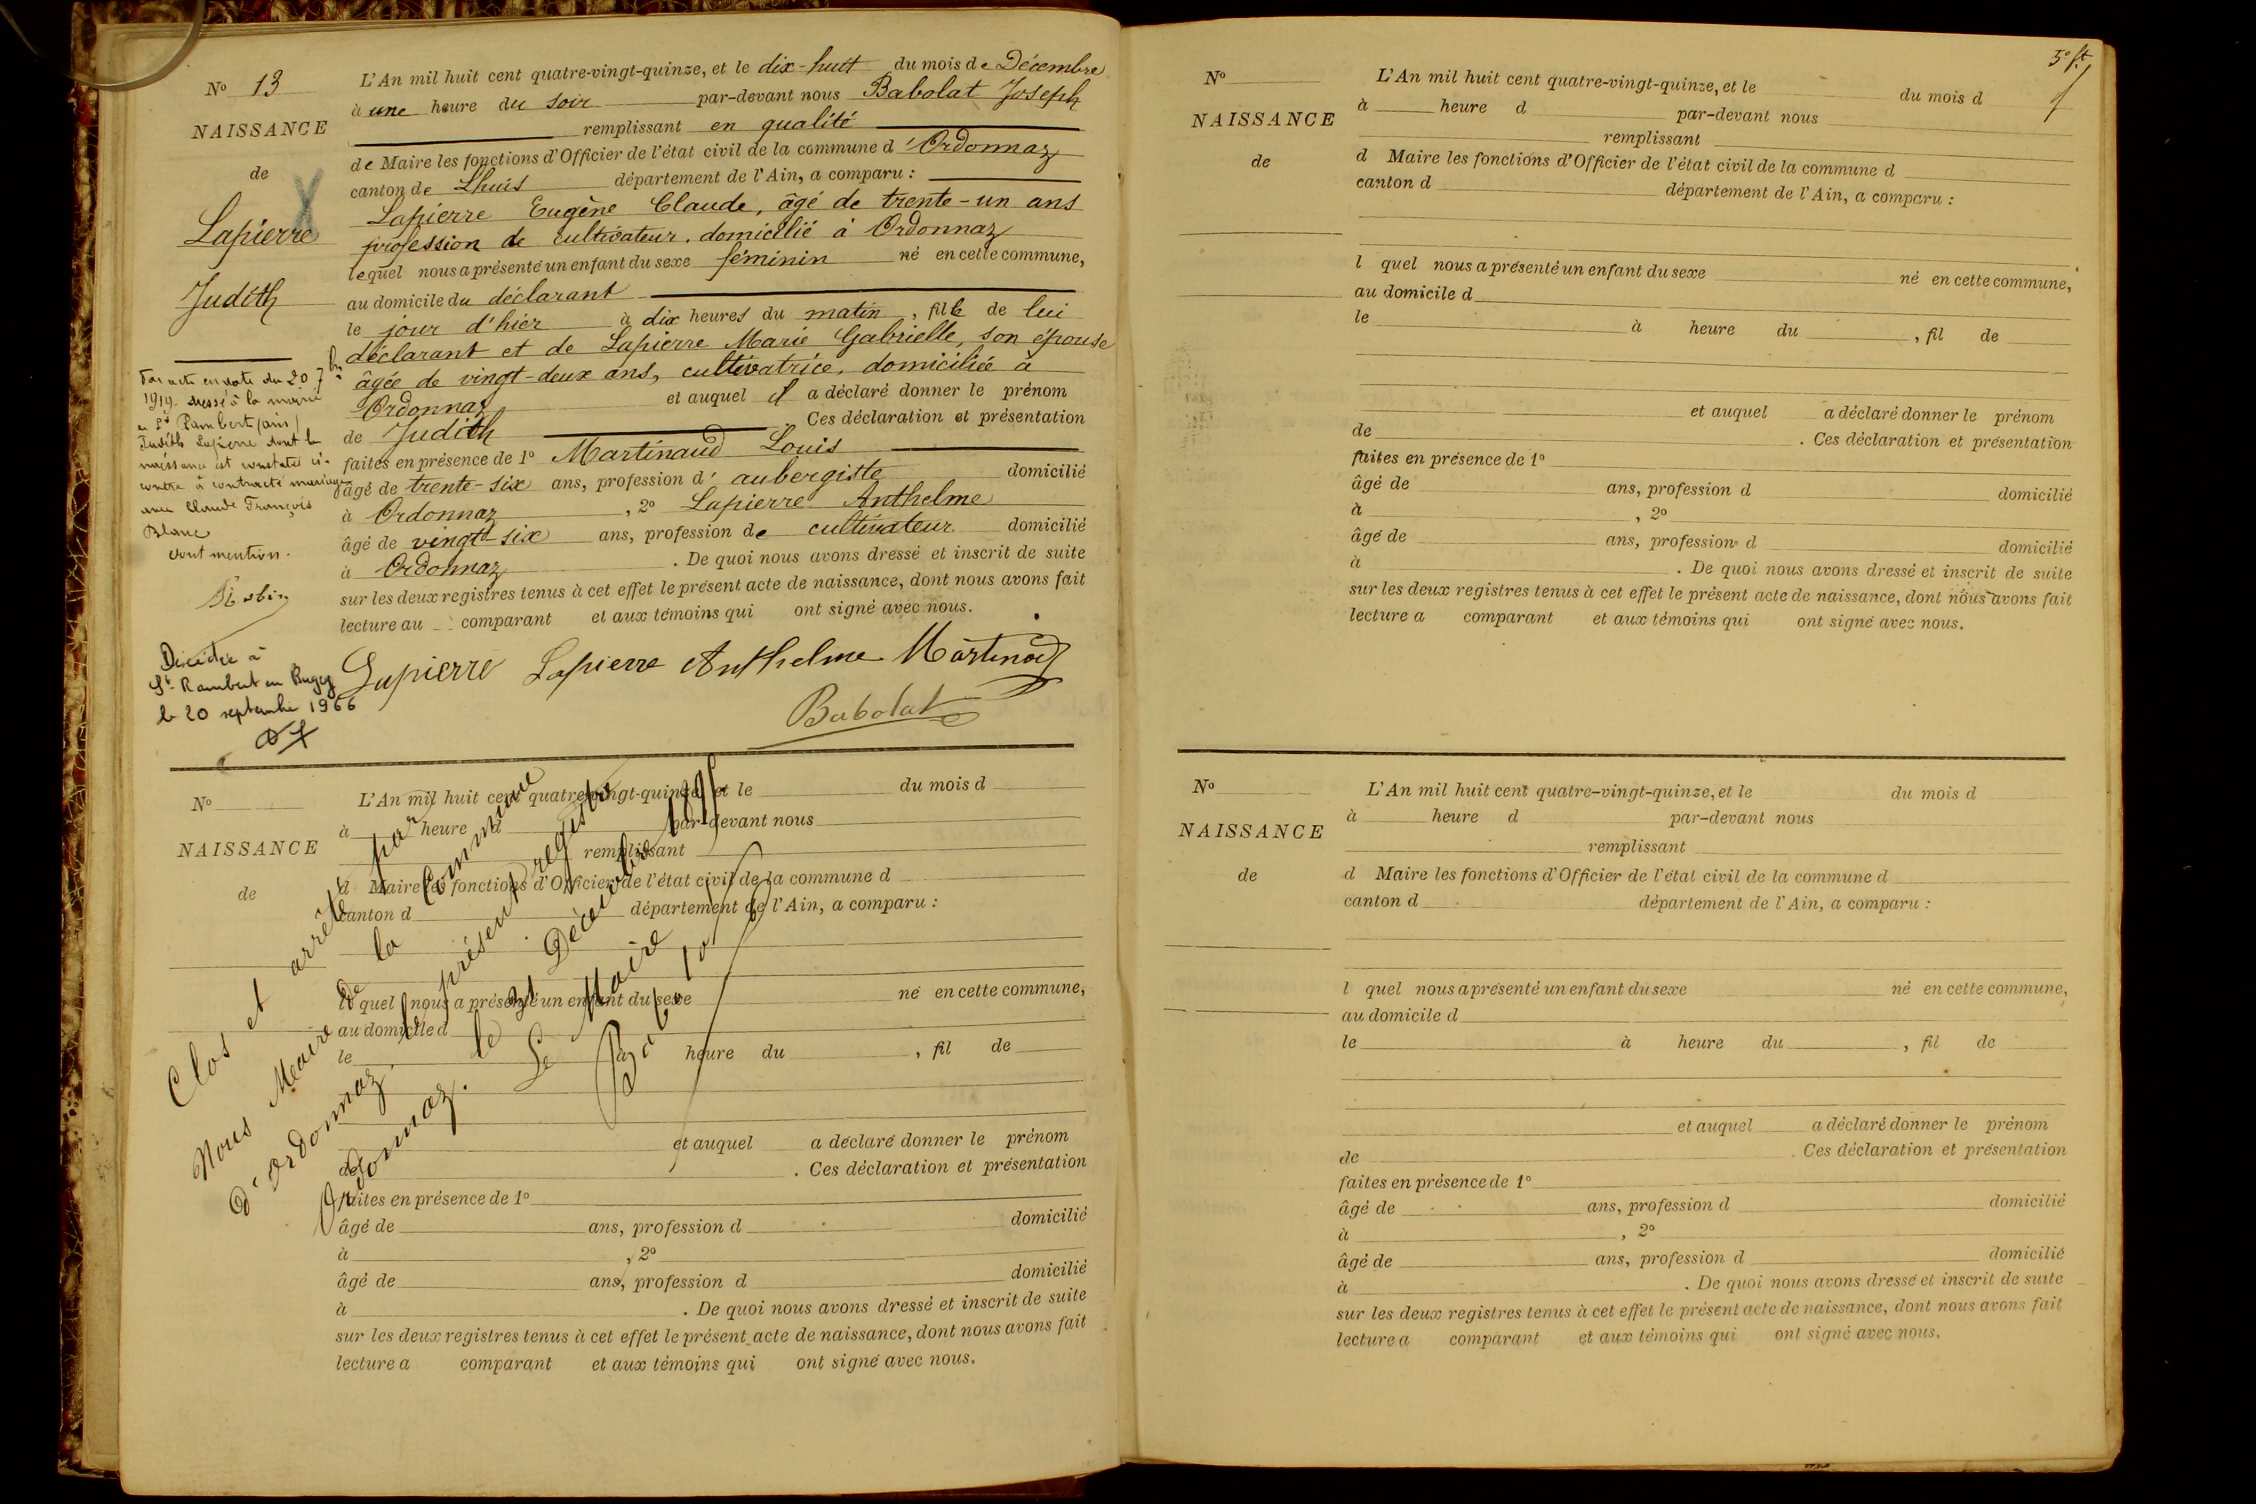 No 13
NAISSANCE
de
Lapierre
Judith
L'An mil huit cent quatre-vingt-quinze, et le dix-huit du mois de Décembre
à une heure du soir par-devant nous Babolat Joseph
remplissant en qualité
de Maire les fonctions d'Officier de l'état civil de la commune d'Ordonnaz
canton de Lhuis département de l'Ain, a comparu :
Lapierre Eugène Claude, âgé de trente-un ans
profession de cultivateur. domicilié à Ordonnaz
lequel nous a présenté un enfant du sexe féminin né en cette commune,
au domicile du déclarant
le jour d'hier à dix heures du matin, fille de lui
déclarant et de Lapierre Marie Gabrielle, son épouse
âgée de vingt-deux ans, cultivatrice, domiciliée à
Ordonnaz et auquel il a déclaré donner le prénom
de Judith Ces déclaration et présentation
faites en présence de 1º Martinaud Louis
âgé de trente-six ans, profession d'aubergiste domicilié
à Ordonnaz, 2º Lapierre Anthelme
âgé de vingt-six ans, profession de cultivateur domicilié
à Ordonnaz. De quoi nous avons dressé et inscrit de suite
sur les deux registres tenus à cet effet le présent acte de naissance, dont nous avons fait
lecture au comparant et aux témoins qui ont signé avec nous.
Lapierre Lapierre Anthelme Martinaud
Babolat
Par acte en date du 20 7bre
1919 dressé à la mairie
Rambert (ain)
Judith Lapierre dont la
naissance est constatée ci-
contre a contracté mariage
avec Claude François
Blanc
dont mention.
Décédée à
St Rambert en Bugey
le 20 septembre 1966
No
NAISSANCE
de
L'An mil huit cent quatre-vingt-quinze, et le du mois d
à heure d par-devant nous
remplissant
d Maire les fonctions d'Officier de l'état civil de la commune d
canton d département de l'Ain, a comparu :
lequel nous a présenté un enfant du sexe né en cette commune,
au domicile d
le à heure du , fil de
et auquel a déclaré donner le prénom
de . Ces déclaration et présentation
faites en présence de 1º
âgé de ans, profession d domicilié
à , 2º
âgé de ans, profession d domicilié
à . De quoi nous avons dressé et inscrit de suite
sur les deux registres tenus à cet effet le présent acte de naissance, dont nous avons fait
lecture a comparant et aux témoins qui ont signé avec nous.
Clos et arrêté par
Nous Maire de la Commune
d'Ordonnaz. le présent registre
Ordonnaz. le 31 Décembre 1895
Le Maire
Babolat
No
NAISSANCE
de
L'An mil huit cent quatre-vingt-quinze, et le du mois d
à heure d par-devant nous
remplissant
d Maire les fonctions d'Officier de l'état civil de la commune d
canton d département de l'Ain, a comparu :
l quel nous a présenté un enfant du sexe né en cette commune,
au domicile d
le à heure du , fil de
et auquel a déclaré donner le prénom
de . Ces déclaration et présentation
faites en présence de 1º
âgé de ans, profession d domicilié
à , 2º
âgé de ans, profession d domicilié
à . De quoi nous avons dressé et inscrit de suite
sur les deux registres tenus à cet effet le présent acte de naissance, dont nous avons fait
lecture a comparant et aux témoins qui ont signé avec nous.
No
NAISSANCE
de
L'An mil huit cent quatre-vingt-quinze, et le du mois d
à heure d par-devant nous
remplissant
d Maire les fonctions d'Officier de l'état civil de la commune d
canton d département de l'Ain, a comparu :
l quel nous a présenté un enfant du sexe né en cette commune,
au domicile d
le à heure du , fil de
et auquel a déclaré donner le prénom
de . Ces déclaration et présentation
faites en présence de 1º
âgé de ans, profession d domicilié
à , 2º
âgé de ans, profession d domicilié
à . De quoi nous avons dressé et inscrit de suite
sur les deux registres tenus à cet effet le présent acte de naissance, dont nous avons fait
lecture a comparant et aux témoins qui ont signé avec nous.